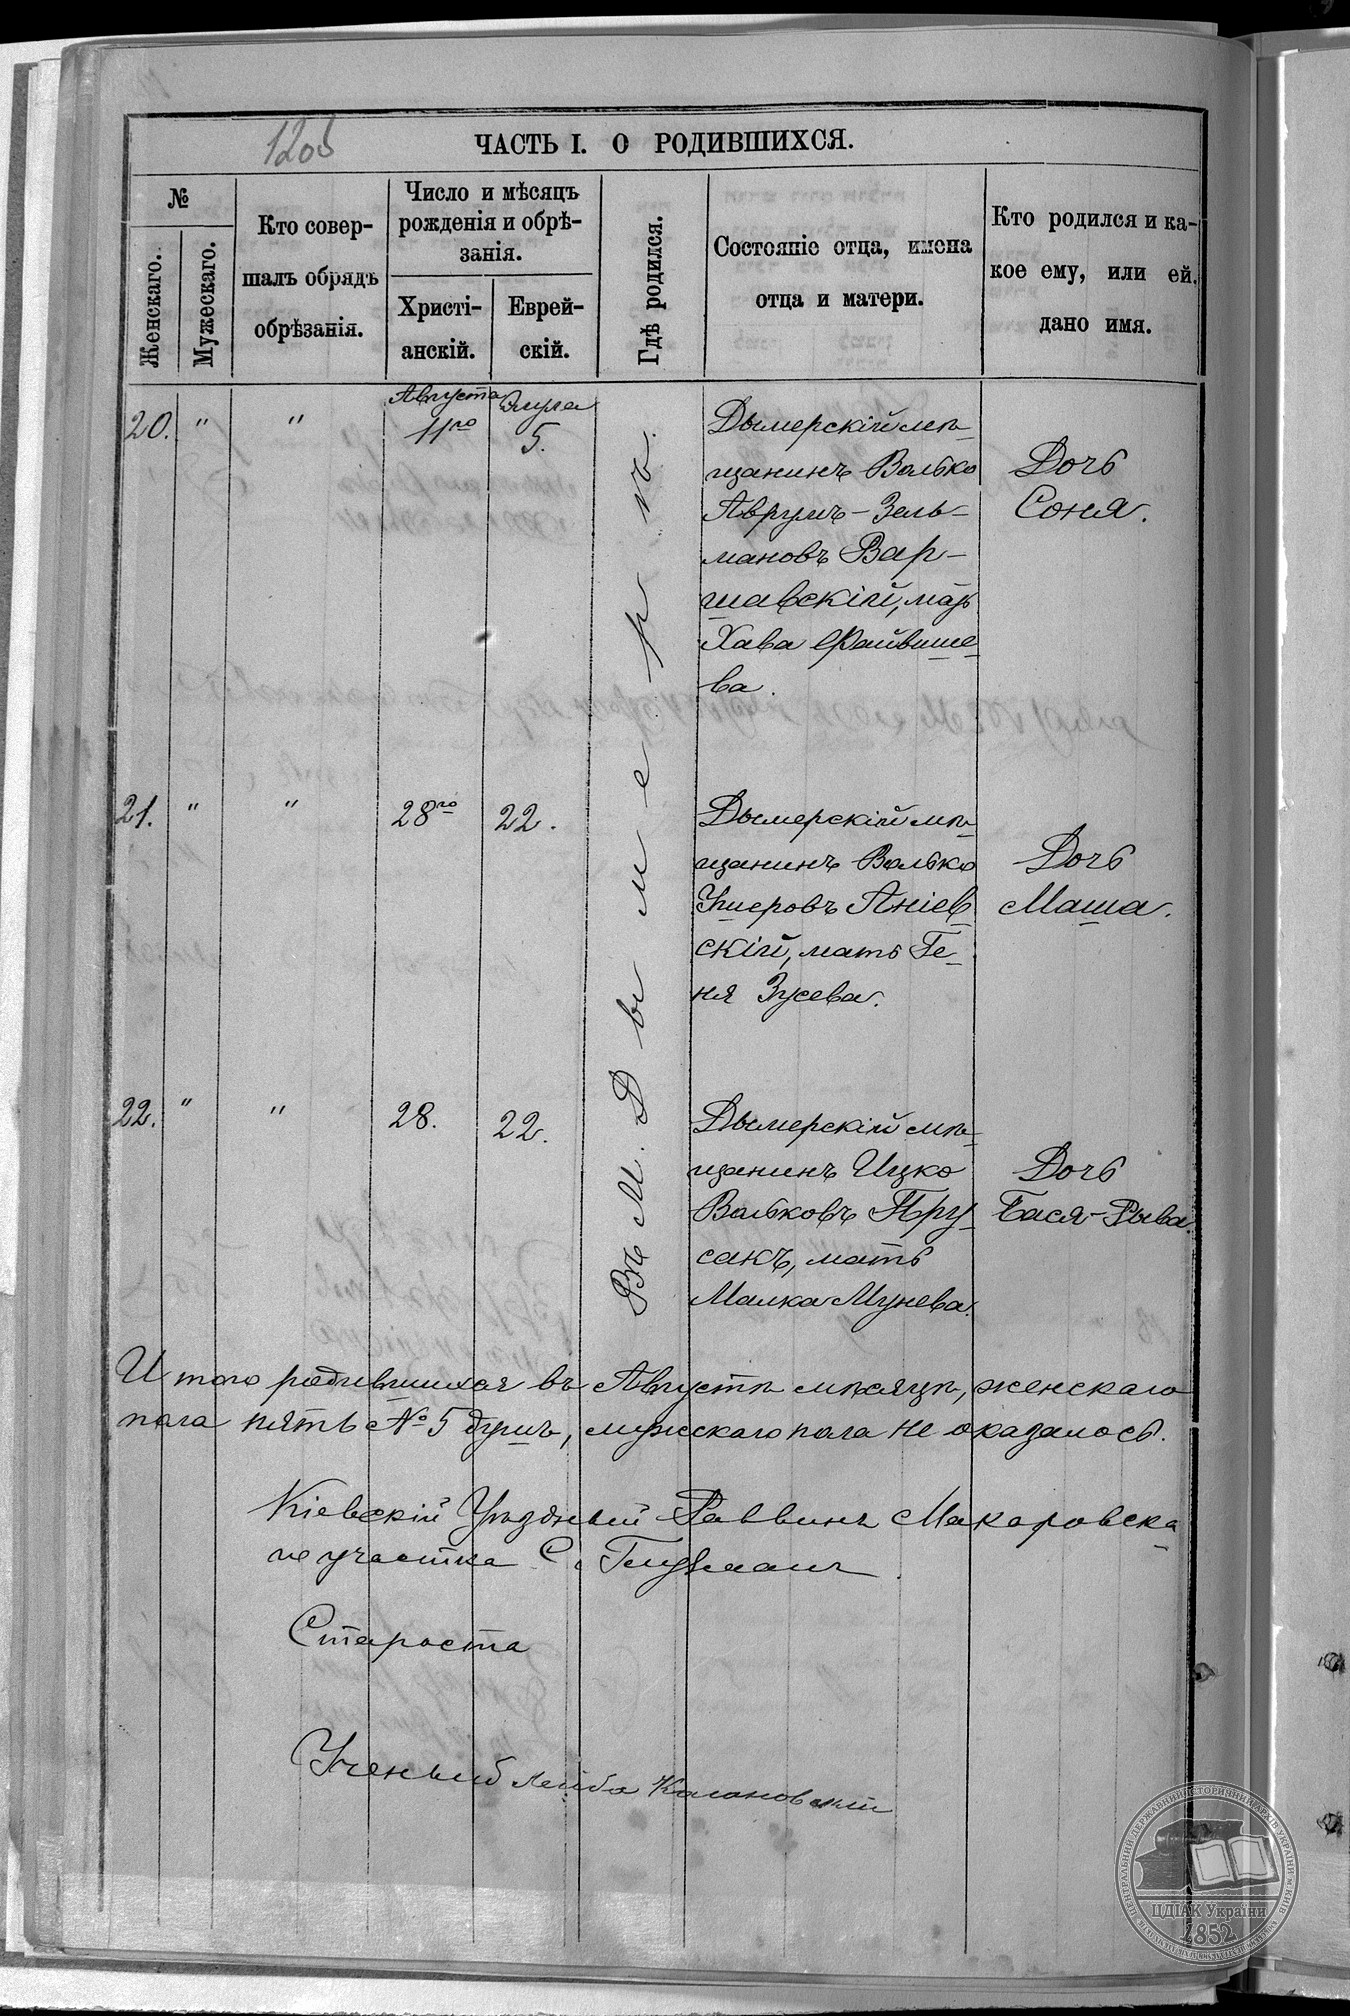 120б
ЧАСТЬ I. О РОДИВШИХСЯ.
№
Женскаго.
Мужескаго.
Кто совер-
шалъ обрядъ
обрѣзанія.
Число и мѣсяцъ
рожденія и обрѣ-
занія.
Христі-
анскій.
Еврей-
скій.
Гдѣ родился.
Состояніе отца, имена
отца и матери.
Кто родился и ка-
кое ему, или ей.
дано имя.
Августа
Элула
20. " " 11го 5.
Въ М. Дымерѣ.
Дымерскій мѣ-
щанинъ Волько
Аврумъ-Зель-
мановъ Вар-
шавскій, мать
Хава Файвише-
ва.
Дочь
Соня.
21. " " 28го 22.
Дымерскій мѣ-
щанинъ Волько
Ушеровъ Аніев-
скій, мать Ге-
ня Зусева.
Дочь
Маша.
22. " " 28. 22.
Дымерскій мѣ-
щанинъ Ицко
Вольковъ Пру-
сакъ, мать
Малка Мунева.
Дочь
Бася-Рыва.
Итого родившихся въ Августѣ мѣсяцѣ, женскаго
пола пять № 5 душъ, мужескаго пола не оказалось.
Кіевскій Уѣздный Раввинъ Макаровска-
го участка С.
Староста
Ученый Лейба
ЦЕНТРАЛЬНИЙ ДЕРЖАВНИЙ ІСТОРИЧНИЙ АРХІВ УКРАЇНИ м. КИЇВ
ЦДІАК України
1852